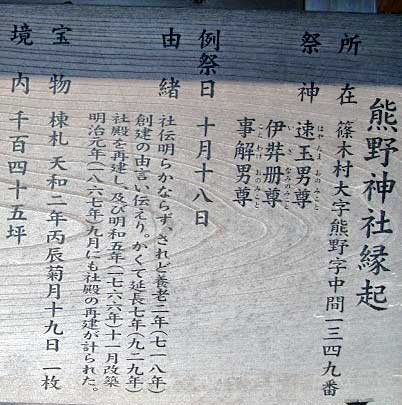 熊野神社縁起
所在 篠木村大字熊野字中間一三四九番
祭神 速玉男尊
はやたまおのみこと
伊弉冊尊
いざなみのみこと
事解男尊
ことわけおのみこと
例祭日 十月十八日
由緒 社伝明らかならず、されど養老二年(七一八年)
創建の由言い伝えり。かくて延長七年(九二九年)
社殿を再建し、及び明和五年(一七六六年)十一月改築
明治元年(一八六七年)九月にも社殿の再建が計られた。
宝物 棟札 天和二年丙辰菊月十九日 一枚
境内 千百四十五坪